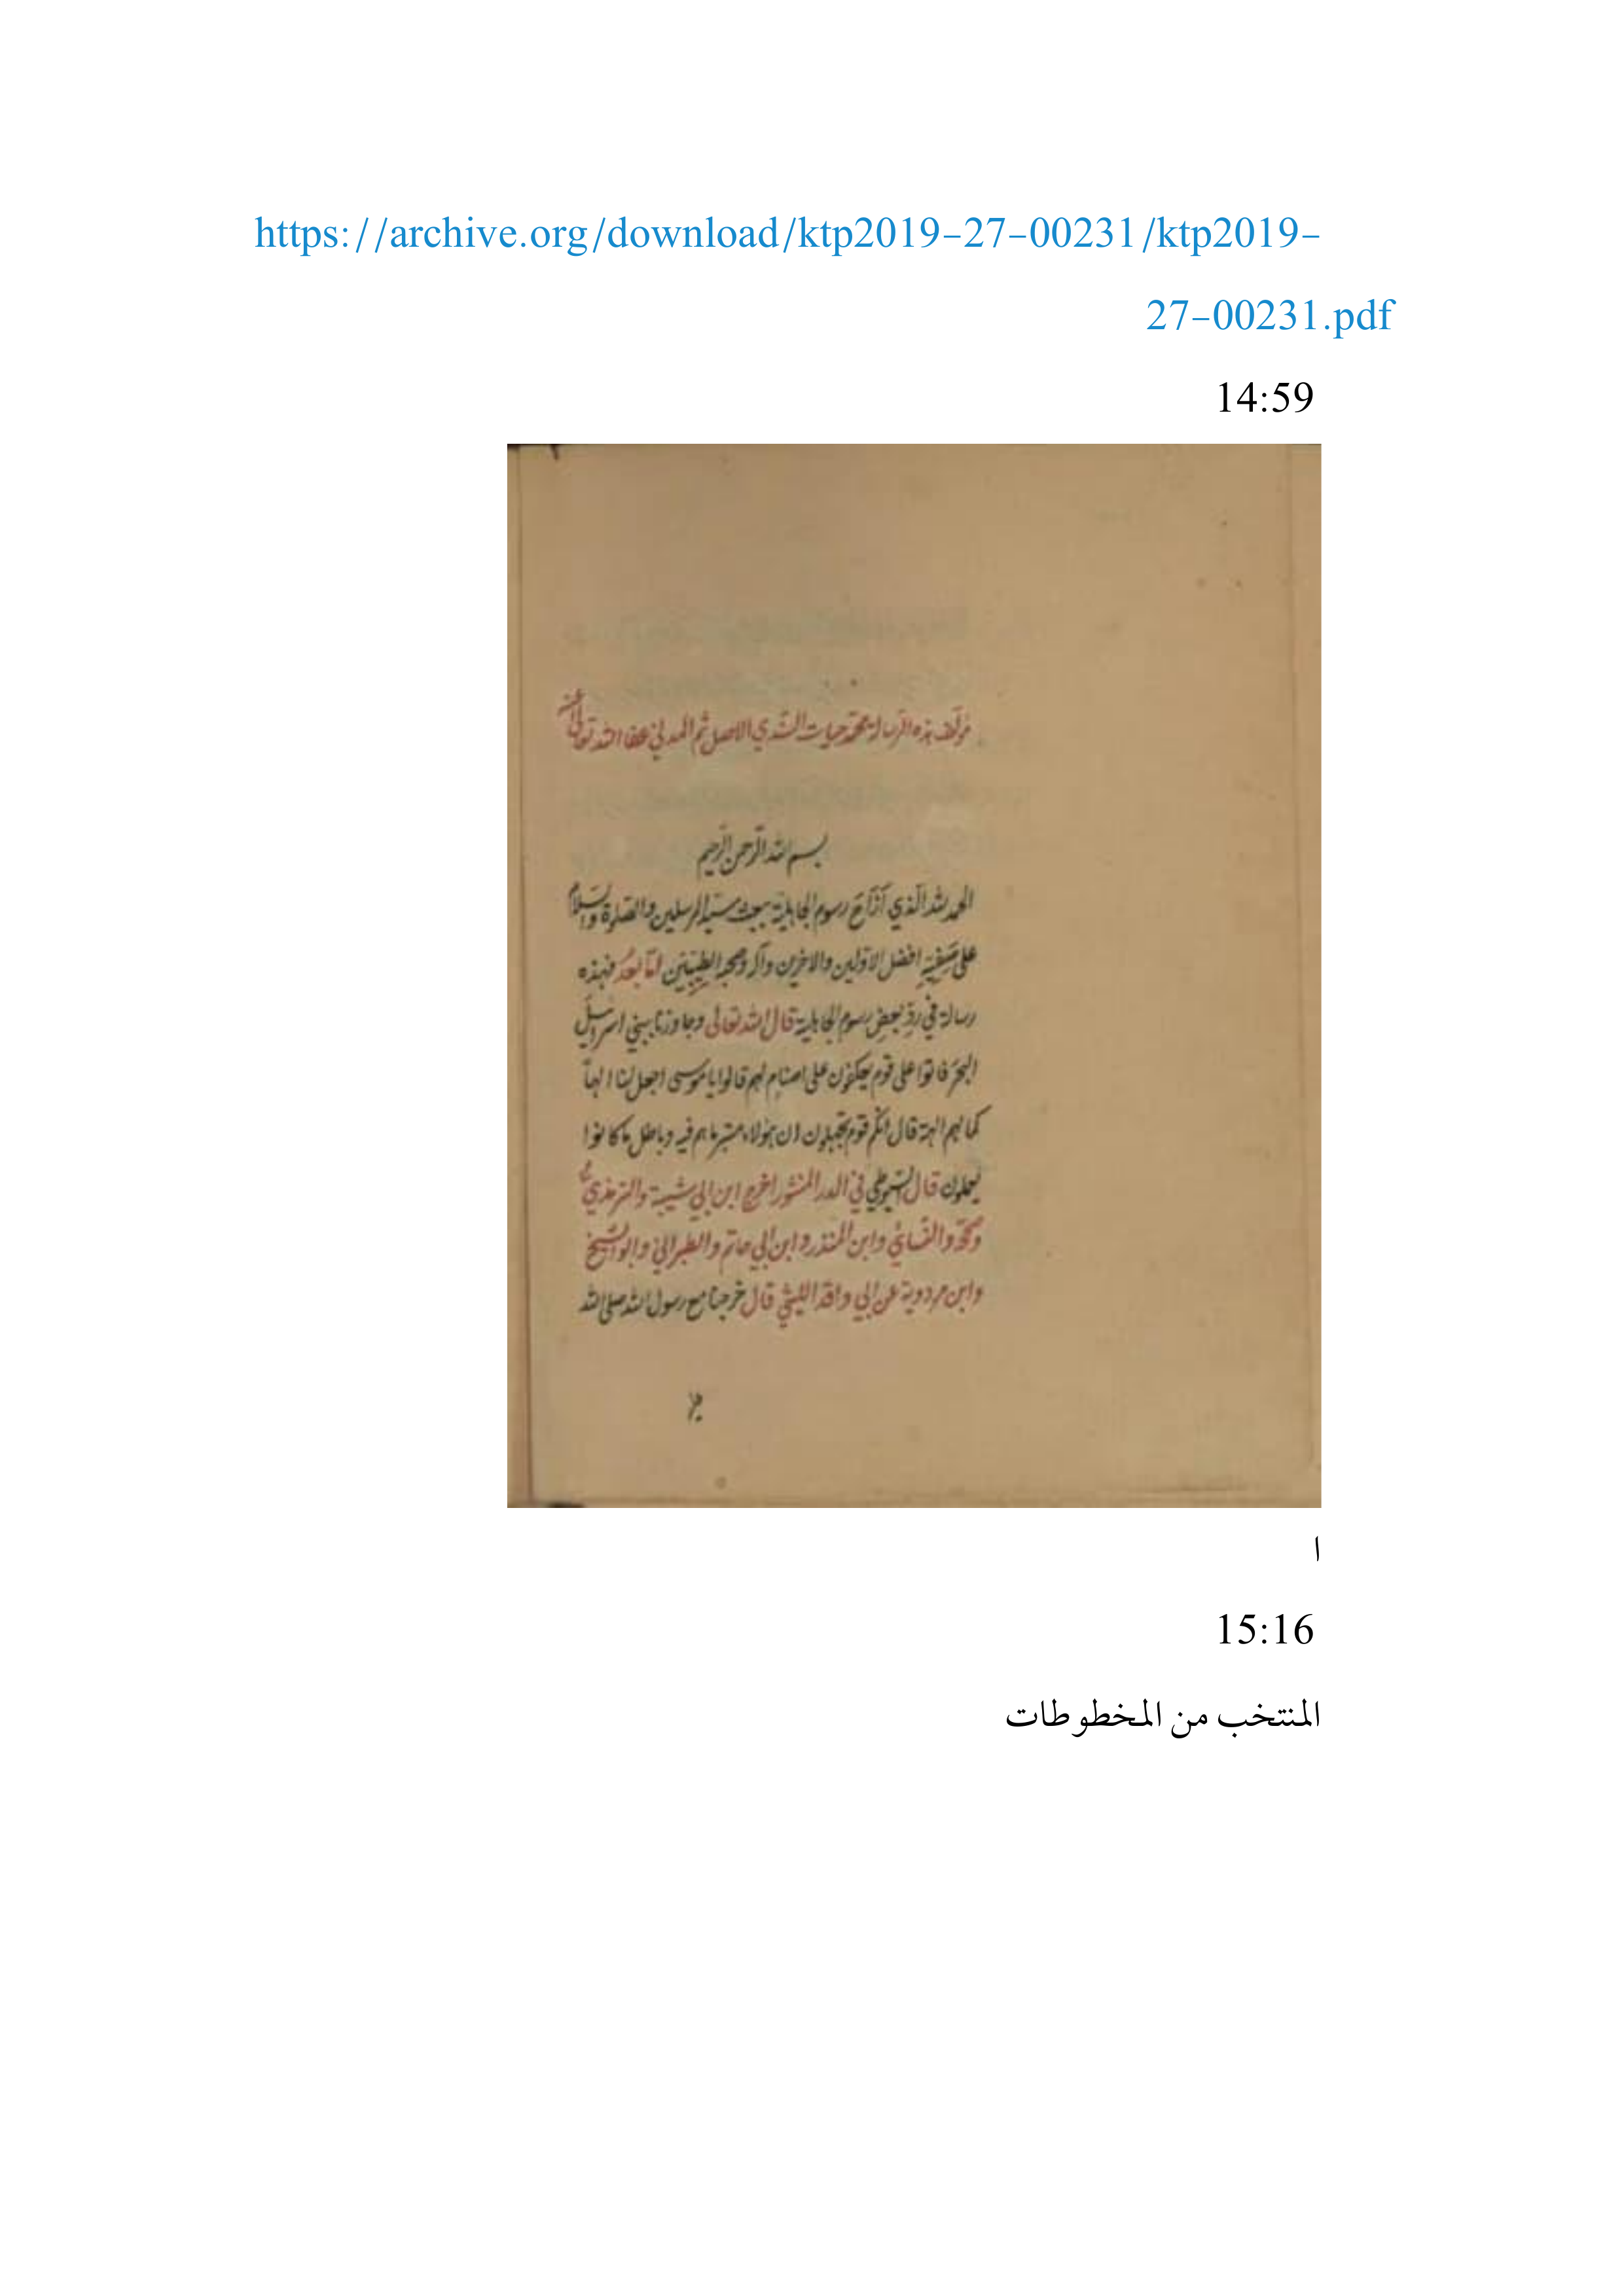 https://archive.org/download/ktp2019-27-00231/ktp2019-
27-00231.pdf
14:59
مؤلف هذه الرسالة محمد حيات السندي الاصل ثم المدني عفا الله تعالى عنه
بسم الله الرحمن الرحيم
الحمد لله الذي أزاح رسوم الجاهلية ببعث سيد المرسلين والصلوة والسلام
على صفيه افضل الاولين والاخرين وآله وصحبه الطيبين اما بعد فهذه
رسالة في رد بعض رسوم الجاهلية قال الله تعالى وجاوزنا ببني اسرائيل
البحر فاتوا على قوم يعكفون على اصنام لهم قالوا يا موسى اجعل لنا الها
كما لهم الهة قال انكم قوم تجهلون ان هؤلاء متبر ما هم فيه وباطل ما كانوا
يعملون قال السيوطي في الدر المنثور اخرج ابن ابي شيبة والترمذي
والنسائي وابن المنذر وابن ابي حاتم والطبراني وابو الشيخ
وابن مردوية عن ابي واقد الليثي قال خرجنا مع رسول الله صلى الله
ا
15:16
المنتخب من المخطوطات